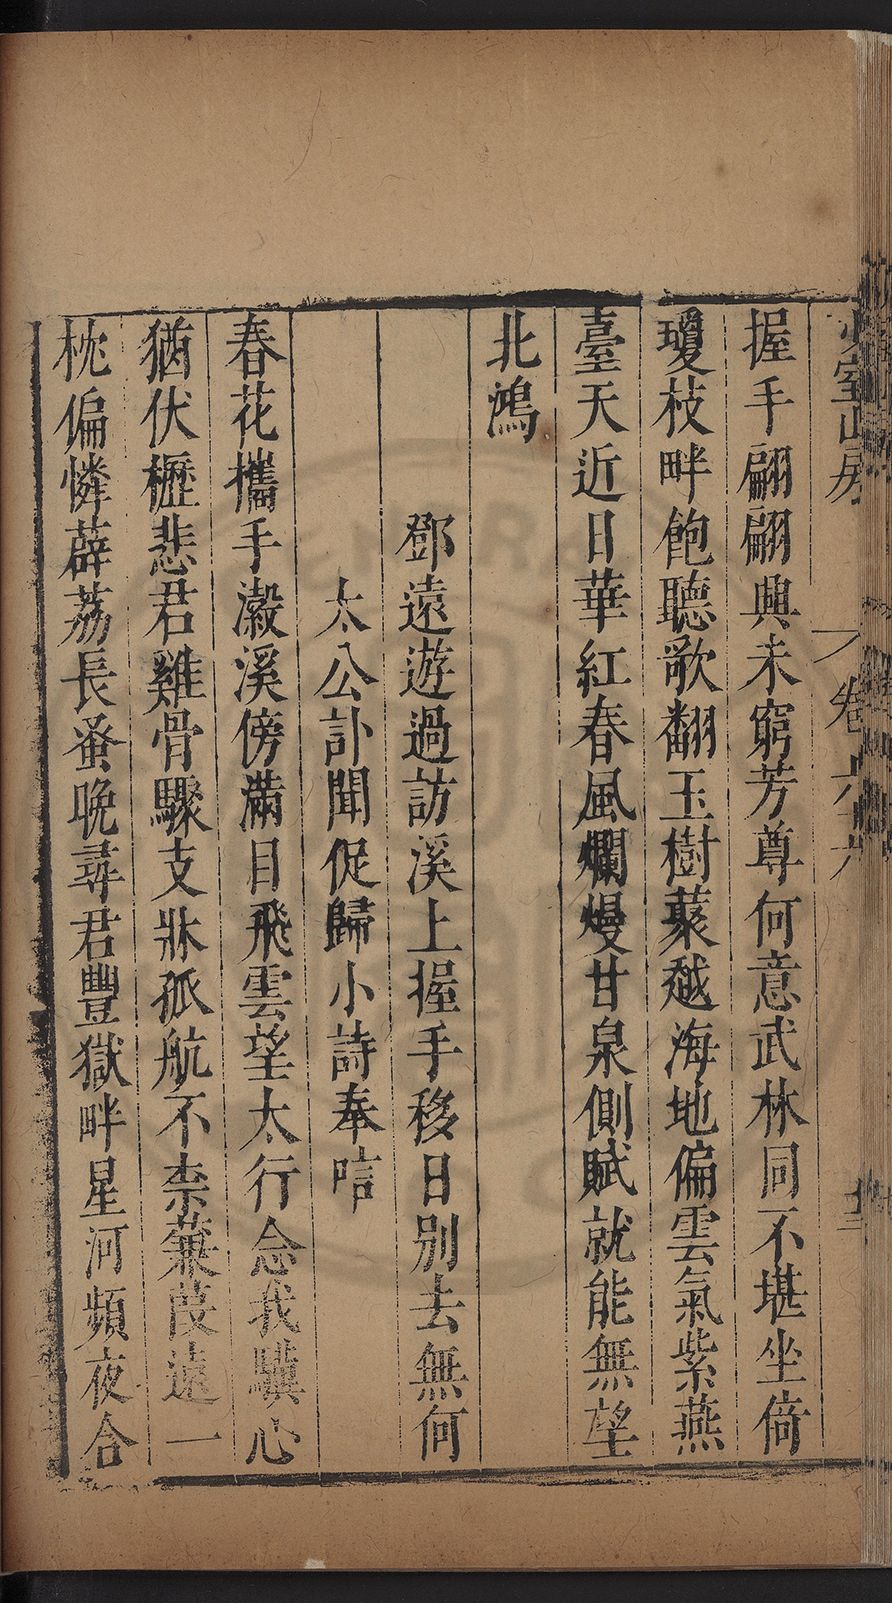 少室山房
卷六十六
握手翩翩興未窮芳尊何意武林同不堪坐倚
瓊枝畔飽聽歌翻玉樹藂越海地偏雲氣紫燕
臺天近日華紅春風爛熳甘泉側賦就能無望
北鴻
鄧遠遊過訪溪上握手移日別去無何
太公訃聞促歸小詩奉唁
春花攜手瀔溪傍滿目飛雲望太行念我驥心
猶伏櫪悲君雞骨驟支牀孤航不柰蒹葭遠一
枕偏憐薜荔長蚤晚尋君豐獄畔星河頻夜合